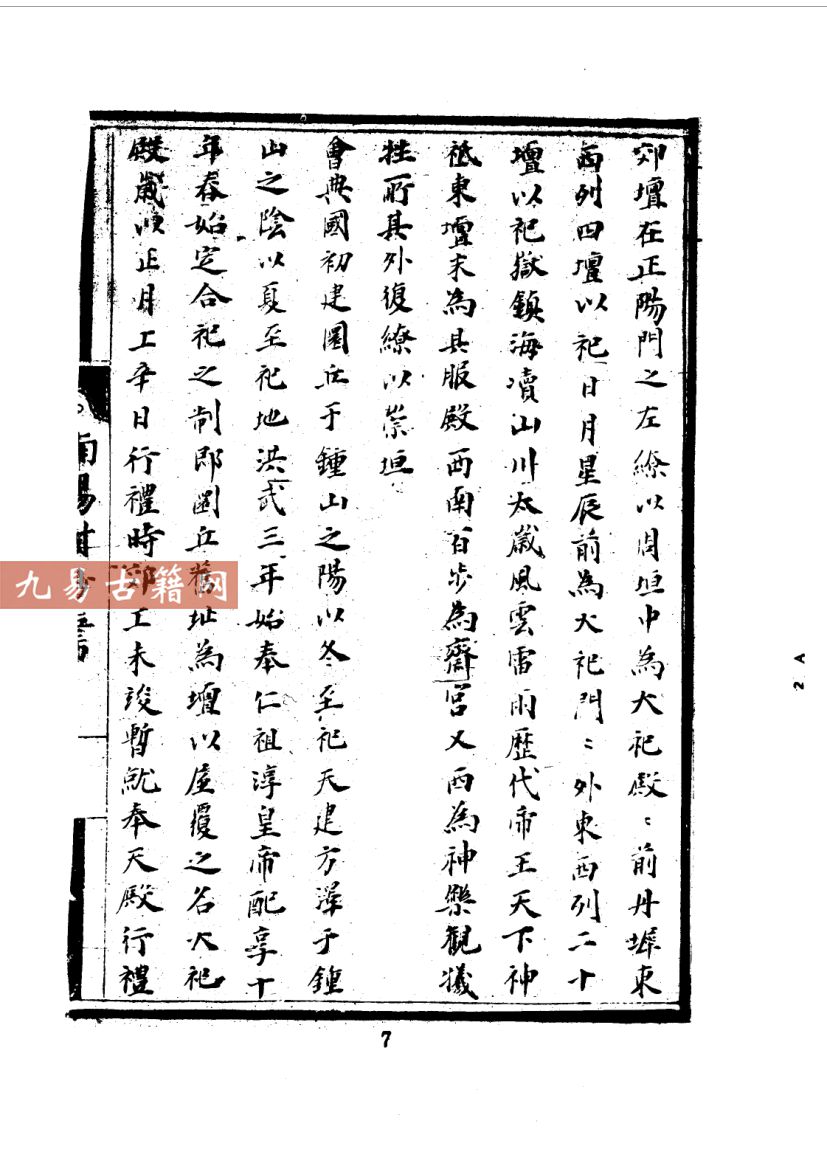 郊壇在正陽門之左繚以周垣中為大祀殿〻前丹墀東
西列四壇以祀日月星辰前為大祀門〻外東西列二十
壇以祀嶽鎮海瀆山川太歲風雲雷雨歷代帝王天下神
祗東壇末為具服殿西南百步為齋宮又西為神樂觀犧
牲所其外復繚以崇垣
會典國初建圜丘于鍾山之陽以冬至祀天建方澤于鍾
山之陰以夏至祀地洪武三年始奉仁祖淳皇帝配享十
年春始定合祀之制即圜丘舊址為壇以屋覆之名大祀
殿歲以正月上辛日行禮時郊工未竣暫就奉天殿行禮
九易古籍网
2 A
7